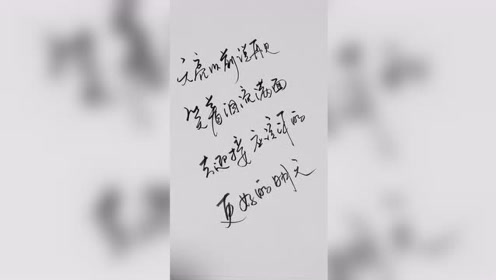 天亮以前说再见
笑着泪流满面
去迎接应该你的
更好的明天